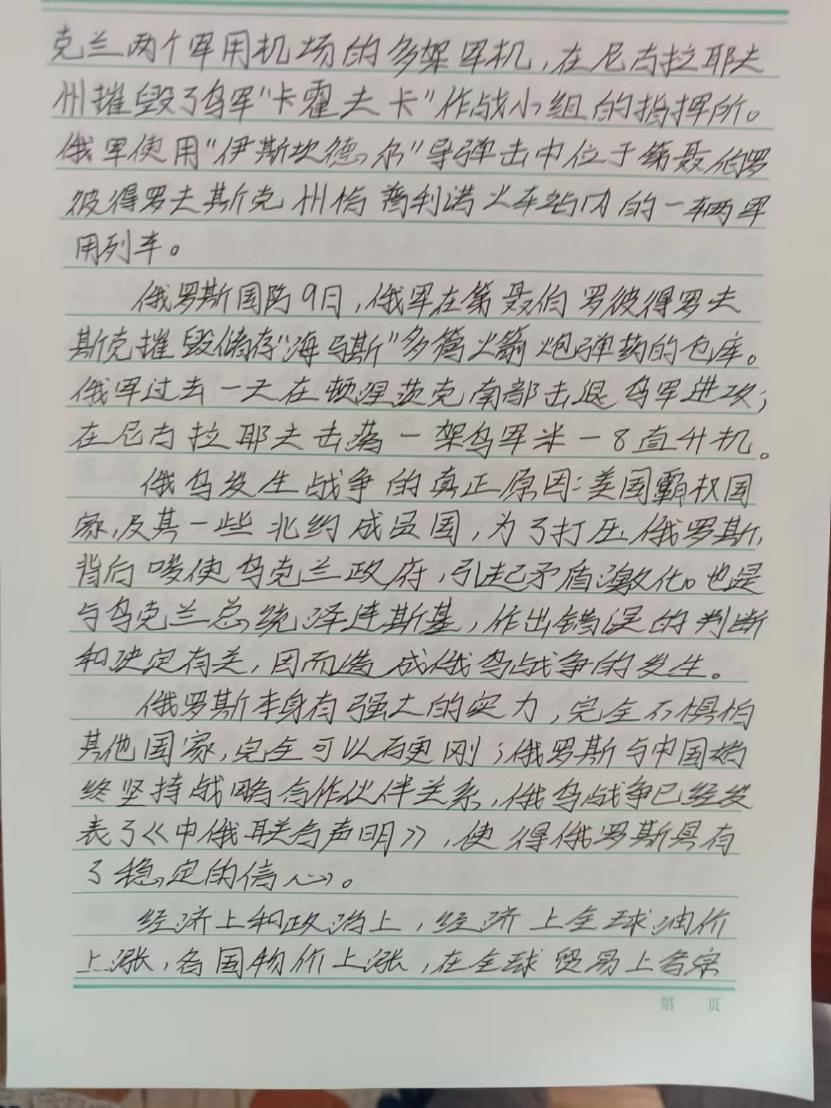 克兰两个军用机场的多架军机，在尼古拉耶夫
州摧毁了乌军“卡霍夫卡”作战小组的指挥所。
俄军使用“伊斯坎德尔”导弹击中位于第聂伯罗
彼得罗夫斯克州恰普利诺火车站内的一辆军
用列车。
俄罗斯国防9日，俄军在第聂伯罗彼得罗夫
斯克摧毁储存“海马斯”多筒火箭炮弹药的仓库。
俄军过去一天在顿涅茨克南部击退乌军进攻；
在尼古拉耶夫击落一架乌军米－8直升机。
俄乌发生战争的真正原因：美国霸权国
家，及其一些北约成员国，为了打压俄罗斯，
背后唆使乌克兰政府，引起矛盾激化。也是
与乌克兰总统泽连斯基，作出错误的判断
和决定有关，因而造成俄乌战争的发生。
俄罗斯本身有强大的实力，完全不惧怕
其他国家，完全可以硬刚；俄罗斯与中国始
终坚持战略合作伙伴关系，俄乌战争已经发
表了《中俄联合声明》，使得俄罗斯具有
了稳定的信心。
经济上和政治上，经济上全球油价
上涨，各国物价上涨，在全球贸易上各宗
第 页